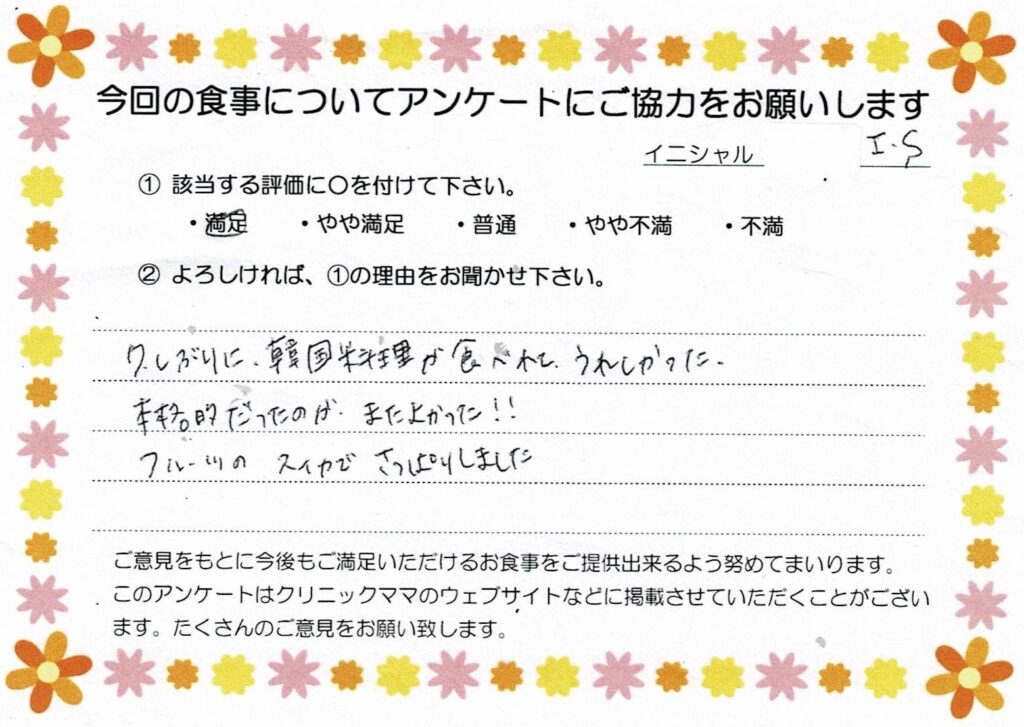 今回の食事についてアンケートにご協力をお願いします
イニシャル I.S
① 該当する評価に〇を付けて下さい。
・満足 ・やや満足 ・普通 ・やや不満 ・不満
② よろしければ、①の理由をお聞かせ下さい。
久しぶりに、韓国料理が食べれて、うれしかった。
本格的だったのが、またよかった!!
フルーツの スイカで さっぱりしました
ご意見をもとに今後もご満足いただけるお食事をご提供出来るよう努めてまいります。
このアンケートはクリニックママのウェブサイトなどに掲載させていただくことがござい
ます。たくさんのご意見をお願い致します。